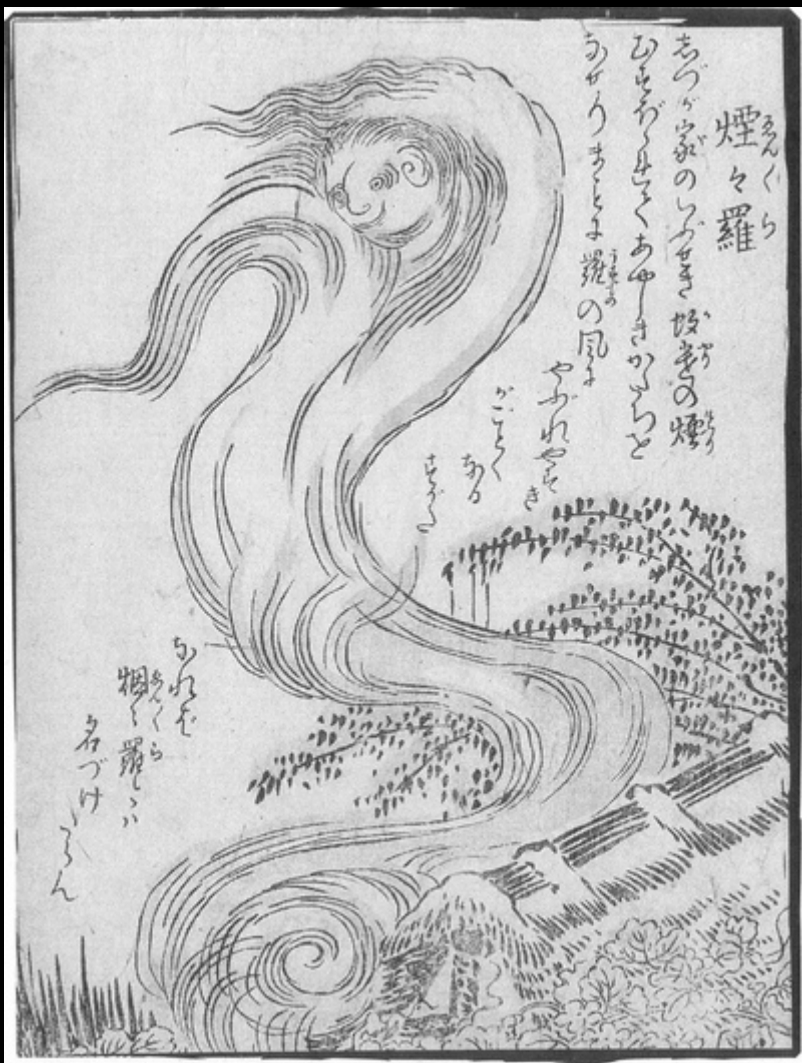 煙々羅
しづが家のいぶせき蚊遣の煙
むすぼゝれてあやしきかたちを
なせりまことに羅の風に
やぶれやすき
がごとく
なる
すがた
なれば
烟々羅とハ
名づけ
たらん